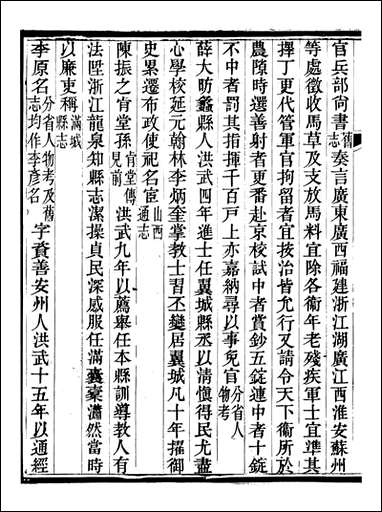 官兵部尙書舊志奏言廣東廣西福建浙江湖廣江西淮安蘇州
等處徵收馬草及支放馬料宜除各衞年老殘疾軍士宜準其
擇丁更代管軍官拘留者宜按治皆允行又請令天下衞所於
農隙時選善射者更番赴京校試中者賞鈔五錠連中者十錠
不中者罰其指揮千百戸上亦嘉納尋以事免官分省人物考
薛大昉蠡縣人洪武四年進士任翼城縣丞以淸愼得民尤盡
心學校延元翰林李炳奎掌教士習丕變居翼城凡十年擢御
史累遷布政使祀名宦山西通志
陳振之肯堂孫肯堂傳見前洪武九年以薦舉任本縣訓導教人有
法陞浙江龍泉知縣志潔操貞民深感服任滿囊橐瀟然當時
以廉吏稱滿城縣志
李原名分省人物考及舊志均作李彥名字資善安州人洪武十五年以通經